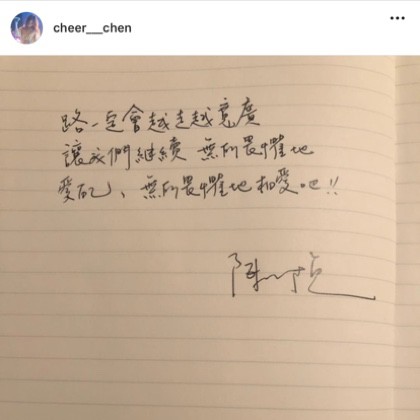 cheer__chen
路一定會越走越寬廣
讓我們繼續 無所畏懼地
愛配、無所畏懼地相愛吧!!
陳綺貞